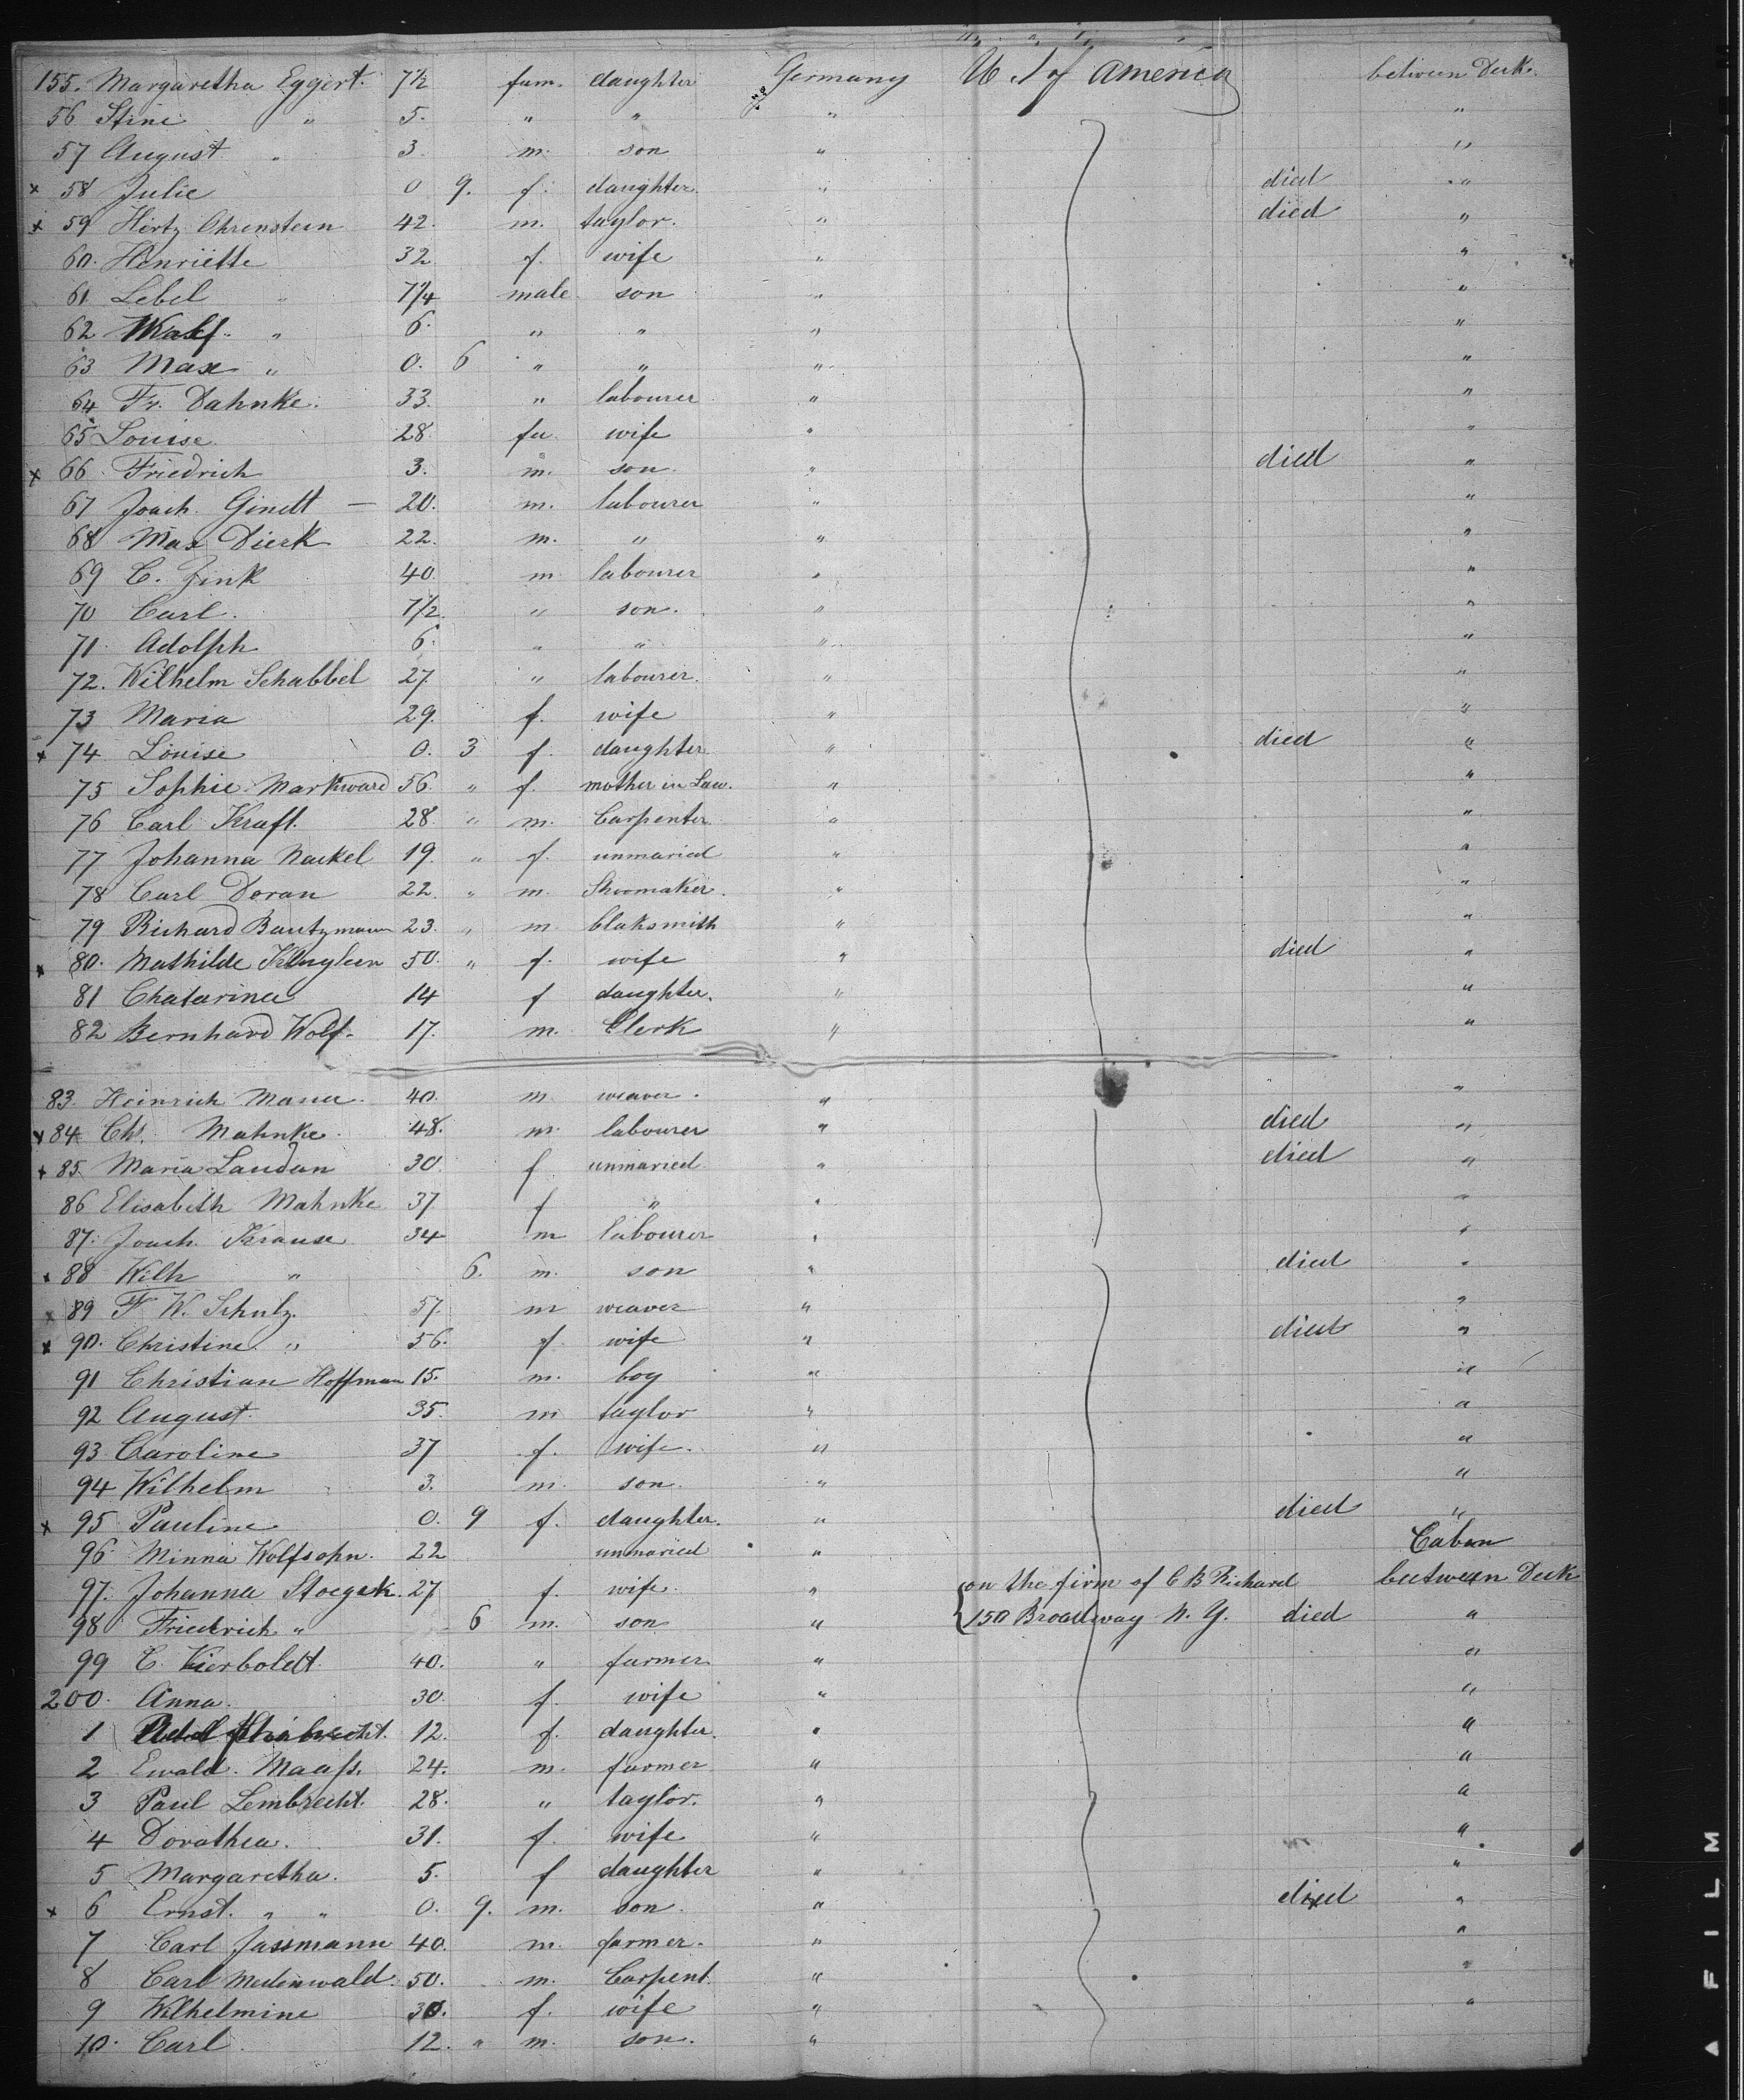 155. Margaretha Eggert. 7 1/2 fem. daughter Germany U. S of America between Deck.
56 Stine " 5. " " " "
57 August " 3. m. son " "
x 58 Julie 0 9. f. daughter " died "
x 59 Hirtz Ohrenstein 42. m. taylor. " died "
60. Henriette 32 f. wife " "
61 Lebel " 7 1/4 male son " "
62 Wolf " 6. " " " "
63 Max " 0. 6 " " " "
64 Fr. Dahnke. 33. " labourer " "
65 Louise 28 fe wife " "
x 66 Friedrich 3. m. son. " died "
67 Joach. Ginett — 20. m. labourer " "
68 Max Dierk 22. m. " " "
69 C. Zink 40. m labourer " "
70 Carl. 7 1/2 " son. " "
71. Adolph 6. " " " "
72. Wilhelm Schabbel 27 " labourer. " "
73 Maria 29. f. wife " "
x 74 Louise 0. 3 f. daughter " died "
75 Sophie Markward 56. " f. mother in Law. " "
76 Carl Kraft. 28. " m. Carpenter " "
77 Johanna Nackel 19. " f. unmaried " "
78 Carl Doran 22. " m. Shoomaker. " "
79 Richard Bautzmann 23. " m. blaksmith " "
x 80. Mathilde 50. " f. wife " died "
81 Chatarina 14 f daughter. " "
82 Bernhard Wolf. 17. m. Clerk " "
83. Heinrich 40. m weaver. " "
x 84 Chs. Mahnke. 48. m. labourer " died "
x 85 Maria Laudan 30. f unmaried " died "
86 Elisabeth Mahnke 37 f " " "
87. Joach. Krause 34 m labourer " "
x 88 Wilh " 6. m. son " died "
x 89 F. W. Schulz. 57. m weaver " "
x 90. Christine " 56. f. wife " died "
91 Christian Hoffman 15. m. boy " "
92 August 35. m taylor " "
93 Caroline 37 f. wife. " "
94 Wilhelm 3. m. son. " "
x 95 Pauline 0. 9 f. daughter. " died "
96. Minna Wolfsohn. 22 unmaried " Caben
97. Johanna 27 f. wife. " on the firm of C B Richard beetween Deck
98 Friedrich " 6 m. son " 150 Broadway N. Y. died "
99 C. Kierboldt. 40. " farmer " "
200. Anna. 30. f. wife " "
1 12. f. daughter. " "
2 Ewald. Maass. 24. m. farmer " "
3 Paul Lembrecht. 28. " taylor. " "
4 Dorathea. 31. f. wife " "
5 Margaretha. 5. f daughter " "
x 6 Ernst. " " 0. 9. m. son. " died "
7 Carl Jassmann 40. m. farmer. " "
8 Carl Medenwald. 50. m. Carpent. " "
9 Wilhelmine 30. f. wife " "
10. Carl. 12. " m. son. "
FILM